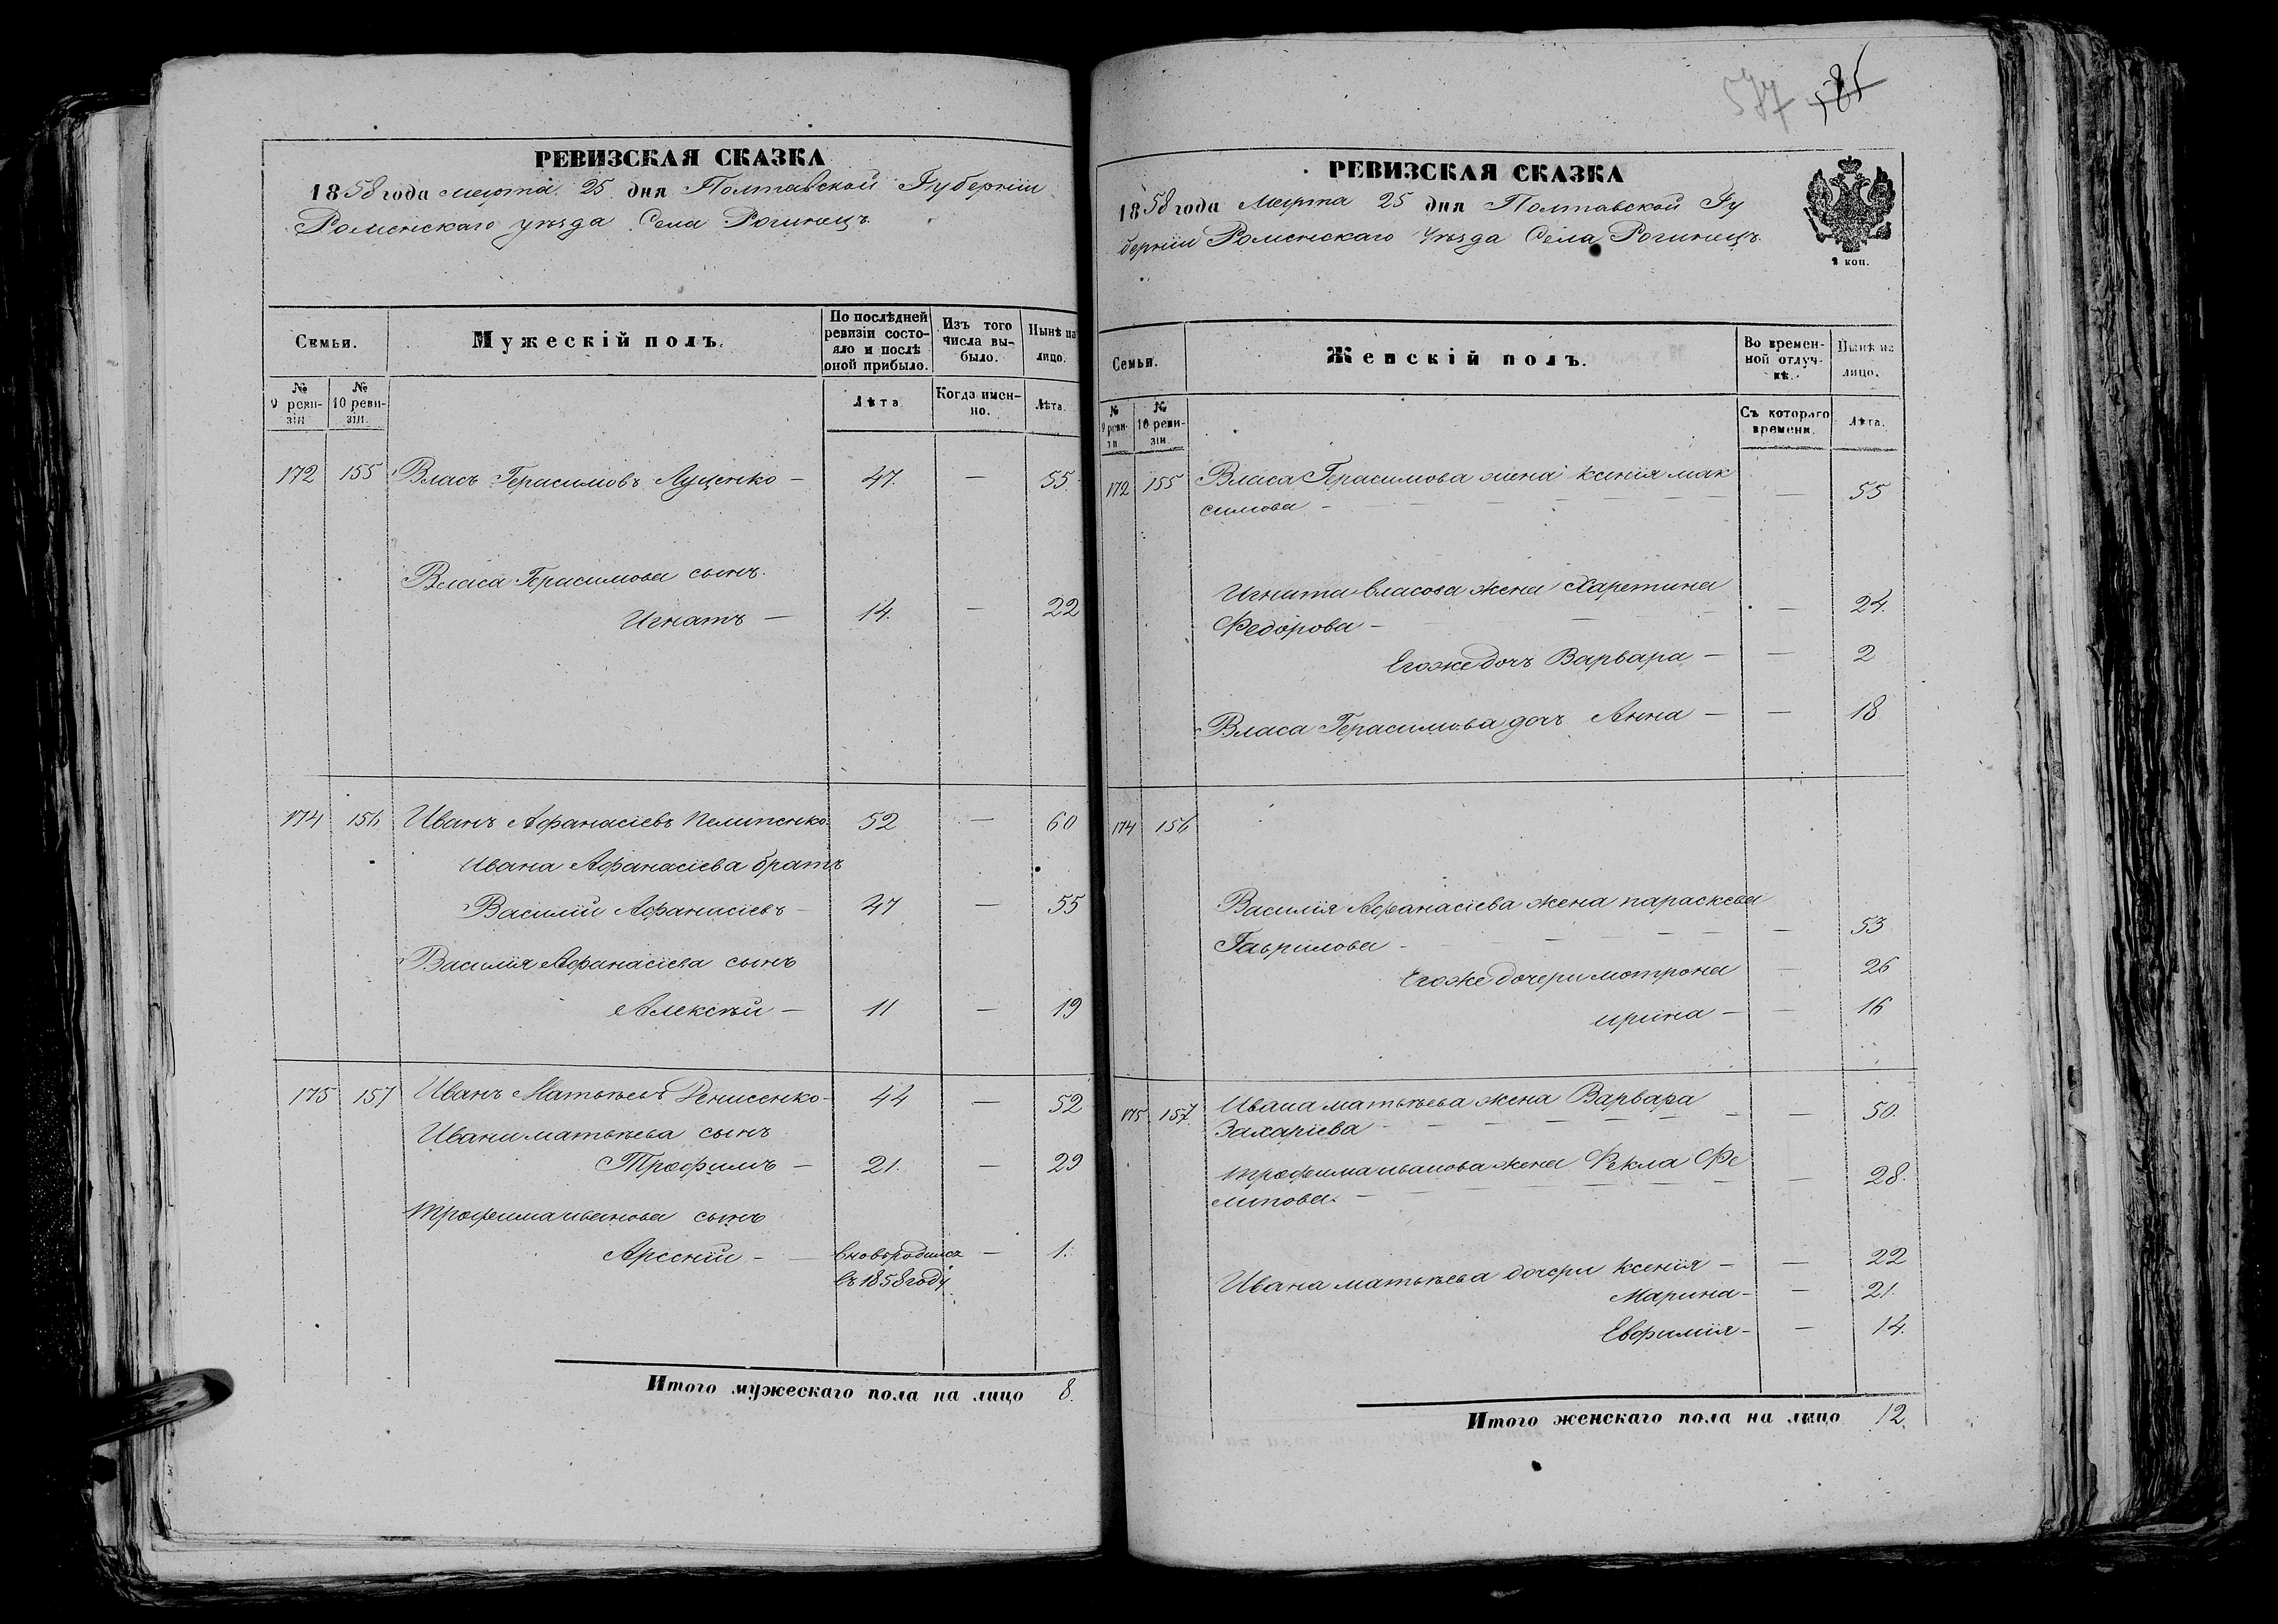 РЕВИЗСКАЯ СКАЗКА
1858 года марта 25 дня Полтавской Губерніи
Роменскаго уѣзда Села Рогинецъ
Семьи.
Мужескій полъ.
По послѣдней ревизіи состояло и послѣ оной прибыло.
Изъ того числа выбыло.
Нынѣ на лицо.
№ 9 ревизіи
№ 10 ревизіи.
Лѣта
Когда именно.
Лѣта.
172 155 Власъ Герасимовъ Луценко — 47. — 55.
Власа Герасимова сынъ
Игнатъ — 14. — 22
174 156 Иванъ Афанасіевъ Пелипенко 52 — 60
Ивана Афанасіева братъ
Василій Афанасіевъ 47 — 55
Василія Афанасіева сынъ
Алексѣй — 11 — 19
175 157 Иванъ Матвѣевъ Денисенко - 44 — 52
Ивана матвѣева сынъ
Трофимъ — 21. — 29
трофима иванова сынъ
Арсеній — вновьродился — 1.
въ 1858 году
Итого мужескаго пола на лицо 8.
577 585
РЕВИЗСКАЯ СКАЗКА
1858 года Марта 25 дня Полтавской Гу
берніи Роменскаго Уѣзда Села Рогинецъ.
коп.
Семьи.
Женскій полъ.
Во временной отлучкѣ.
Нынѣ на лицо.
№ 9 ревизіи
№ 10 ревизіи.
Съ котораго времени.
Лѣта.
172 155 Власа Герасимова жена ксенія мак
симова — — 55
Игната власова жена Харетина
Федорова — — 24.
Егоже дочь Варвара — — 2
Власа Герасимова дочь Анна — — 18
174 156
Василія Афанасіева жена параскева
Гаврилова — — 53
Егоже дочери мотрона — 26
ирина — — 16
175 157 Ивана матвѣева жена Варвара
Захаріева — — 50.
трофима иванова жена Фекла Фи
липова — — 28.
Ивана матвѣева дочери ксенія — — 22
Марина — — 21.
Евфимія — — 14.
Итого женскаго пола на лицо 12.